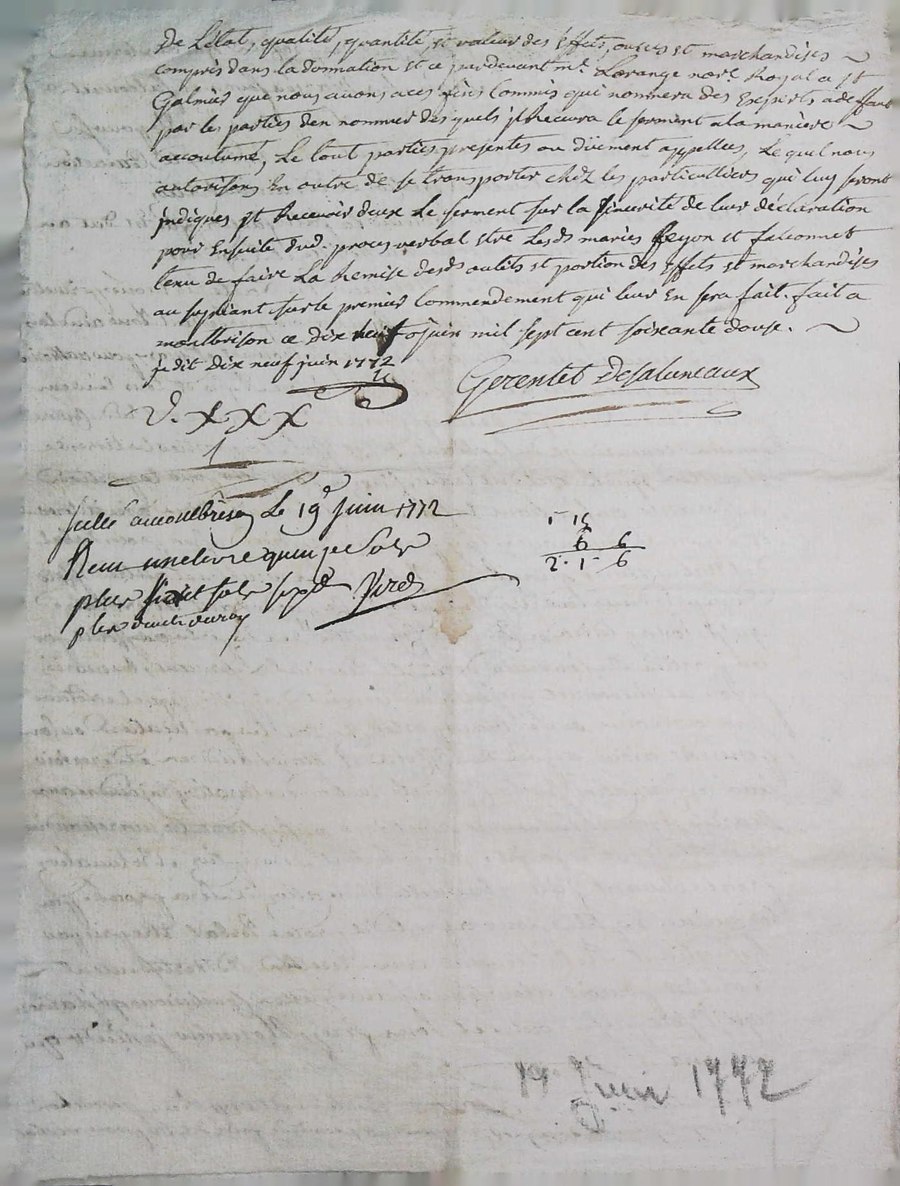 De L'etat, qualité, quantité, et valeur des Effets, outils et marchandises
compris dans la donnation et ce pardevant mᵉ. Lorange notʳᵉ Royal a st
Galmier que nous avons a ces fins Commis qui nommera des Experts a deffaut
par les parties d'en nommer desquels jl Recevra le serment a la maniere
accoutumé, Le tout parties presentes ou düement appellées, Lequel nous
autorisons En outre de se transporter chez les particulliers qui luy seront
jndiqués et Recevoir d'eux Le serment sur la sincerité de leur déclaration
pour Ensuite dud. procès verbal Etre Lesds mariés feyon et falconnet
tenu de faire La Remise desds outils et portion des Effets et marchandises
au supliant sur le premier Commendement qui leur En sera fait. fait a
montbrison ce dix neuf juin mil sept cent soixante douse.
je dit dix neuf juin 1772
Gerentet Desaluneaux
V. XXX
1
scellé a montbrison Le 19 juin 1772
Recu une livre quinze sols
plus sols
plus
1 15
6 6
2 · 1 · 6
19 Juin 1772